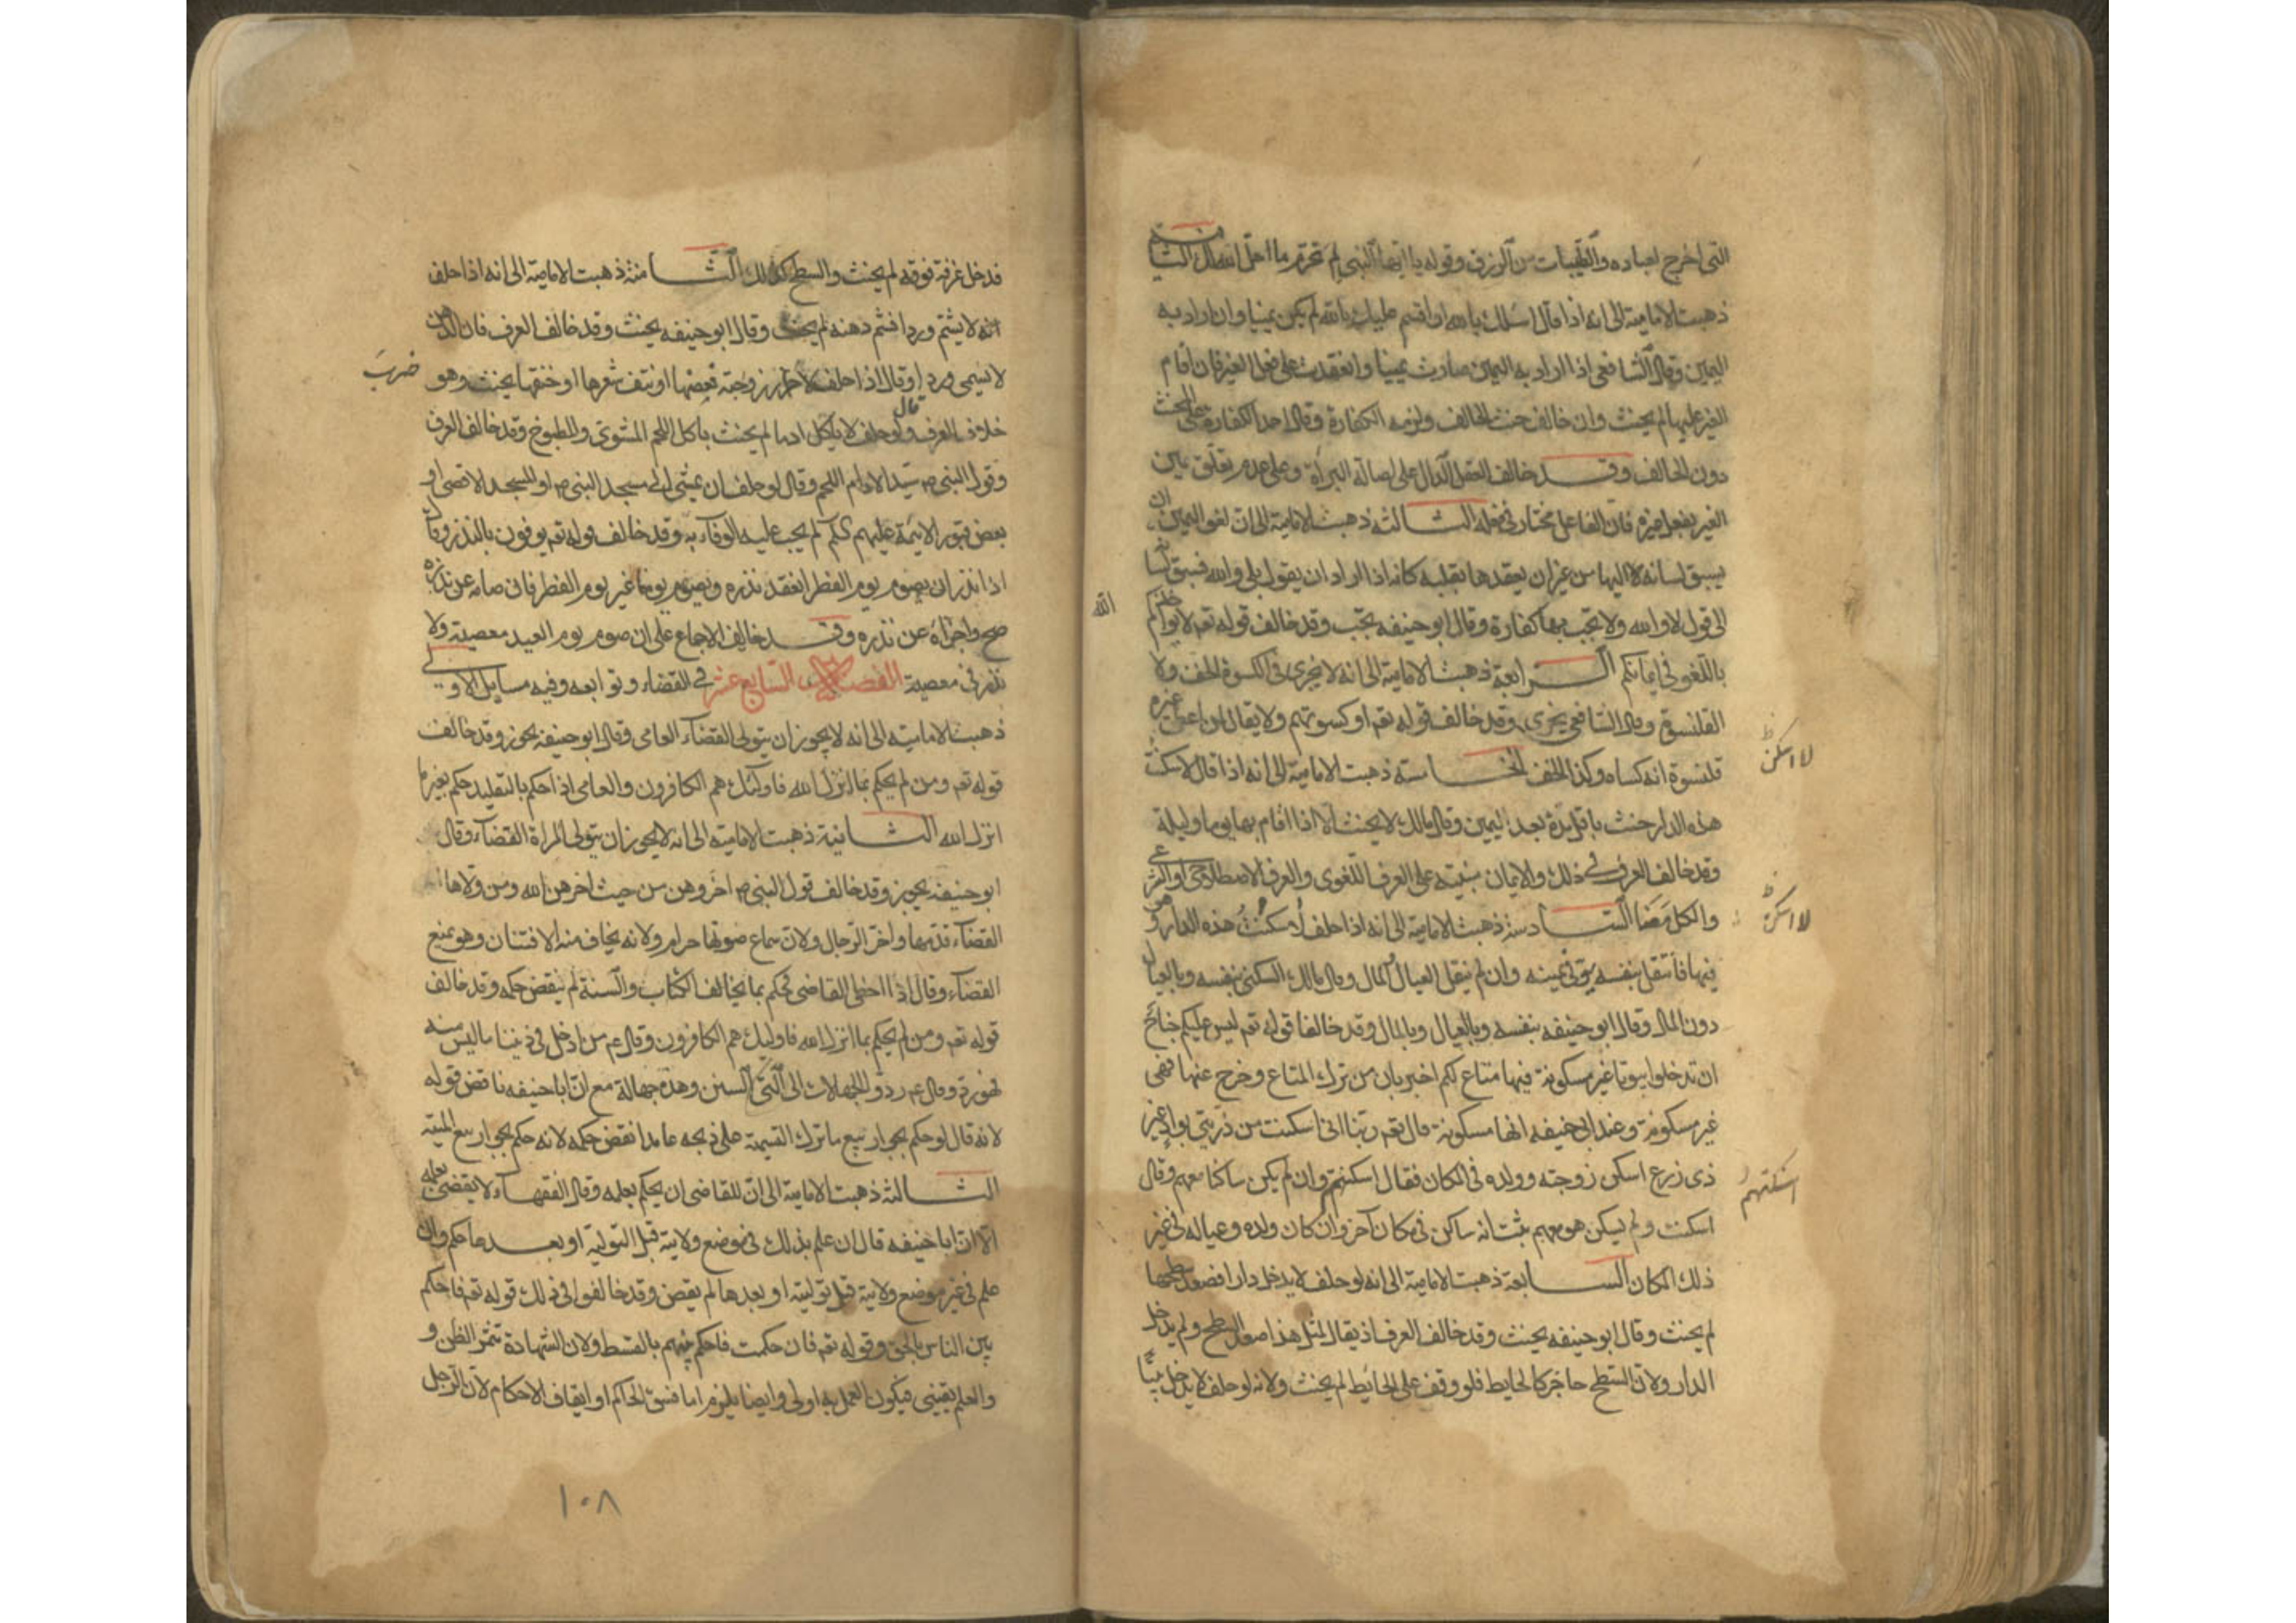 التى اخرج لعباده والطيبات من الرزق وقوله يا ايها النبى لم تحرم ما احل الله لك الثانية
ذهبت الامامية الى انه اذا قال اسئلك بالله او اقسم عليك بالله لم يكن يمينا وان اراد به
اليمين وقال الشافعى اذا اراد به اليمين صارت يمينا وانعقدت على فعل الغير فان اقام
الغير عليها لم يحنث وان خالف حنث الحالف ولزمه الكفارة وقال احمد الكفارة على المحنث
دون الحالف وقد خالف العقل الدال على اصالة البرأة وعلى عدم تعلق يمين
الغير بفعل غيره فان الفاعل مختار فى فعله الثالثة ذهبت الامامية الى ان لغو اليمين ان
يسبق لسانه اليها من غير ان يعقدها بقلبه كانه اذا اراد ان يقول بلى والله فسبق لسانه
الى قول لا والله ولا تجب بها كفارة وقال ابو حنيفه تجب وقد خالف قوله تعم لا يؤاخذكم
الله
باللغو فى ايمانكم الرابعة ذهبت الامامية الى انه لا يجزى فى الكسوة الخف ولا
القلنسوة وقال الشافعى يجزى وقد خالف قوله تعم او كسوتهم ولا يقال لمن اعطى غيره
قلنسوة انه كساه وكذا الخف الخامسة ذهبت الامامية الى انه اذا قال لا سكنت
لا اسكن
هذه الدار حنث باقل مدة بعد اليمين وقال مالك لا يحنث الا اذا اقام بها يوما وليلة
وقد خالف العرف فى ذلك والايمان مبنية على العرف اللغوى والعرف الاصطلاحى او الشرعى
والكل معنا السادسة ذهبت الامامية الى انه اذا حلف لا سكنت هذه الدار وهو
لا اسكن
فيها فانتقل بنفسه بر فى يمينه وان لم ينقل العيال والمال وقال مالك السكنى بنفسه وبالعيال
دون المال وقال ابو حنيفه بنفسه وبالعيال وبالمال وقد خالفا قوله تعم ليس عليكم جناح
ان تدخلوا بيوتا غير مسكونة فيها متاع لكم اخبر بان من ترك المتاع وخرج عنها فهى
غير مسكونة وعند ابى حنيفه انها مسكونة وقال تعم ربنا انى اسكنت من ذريتى بواد غير
ذى زرع اسكن زوجته وولده فى المكان فقال اسكنتهم وان لم يكن ساكنا معهم وقال
اسكنتهم
اسكنت ولم يسكن هو معهم ثبت انه ساكن فى مكان آخر وان كان ولده وعياله فى غير
ذلك المكان السابعة ذهبت الامامية الى انه لو حلف لا يدخل دارا فصعد سطحها
لم يحنث وقال ابو حنيفه يحنث وقد خالف العرف اذ يقال لمثل هذا صعد السطح ولم يدخل
الدار ولان السطح حاجز كالحايط فلو وقف على الحائط لم يحنث ولانه لو حلف لا يدخل بيتا
فدخل غرفة فوقه لم يحنث والسطح كذلك الثامنة ذهبت الامامية الى انه اذا حلف
انه لا يشتم وردا فشم دهنه لم يحنث وقال ابو حنيفه يحنث وقد خالف العرف فان الدهن
لا يسمى وردا وقال اذا حلف لا زوجته فعضها او نتف شعرها او خنقها يحنث وهو
ضرب
خلاف العرف وقال لو حلف لا ياكل ادما لم يحنث باكل اللحم المشوى والمطبوخ وقد خالف العرف
وقول النبى ص سيد الادام اللحم وقال لو حلف ان يمشى الى مسجد النبى ص او المسجد الاقصى او
بعض قبور الائمة عليهم السلم لم يجب عليه الوفاء به وقد خالف قوله تعم يوفون بالنذر وقال
اذا نذر ان يصوم يوم الفطر انعقد نذره ويصوم يوما غير يوم الفطر فان صامه عن نذره
صح واجزأه عن نذره وقد خالف الاجماع على ان صوم يوم العيد معصية ولا
نذر فى معصية الفصل السابع عشر فى القضاء وتوابعه وفيه مسايل الاولى
ذهبت الامامية الى انه لا يجوز ان يتولى القضاء العامى وقال ابو حنيفه يجوز وقد خالف
قوله تعم ومن لم يحكم بما انزل الله فاولئك هم الكافرون والعامى اذا حكم بالتقليد حكم بغير ما
انزل الله الثانية ذهبت الامامية الى انه لا يجوز ان يتولى المراة القضاء وقال
ابو حنيفه يجوز وقد خالف قول النبى ص اخروهن من حيث اخرهن الله ومن ولاها
القضاء قدمها واخر الرجال ولان سماع صوتها حرام ولانه يخاف منه الافتتان وهو يمنع
القضاء وقال اذا اخطى القاضى فحكم بما يخالف الكتاب والسنة لم ينقض حكمه وقد خالف
قوله تعم ومن لم يحكم بما انزل الله فاولئك هم الكافرون وقال عم من ادخل فى ديننا ما ليس منه
فهو رد وقال عم ردوا الجهالات الى السنن وهذه جهالة مع ان ابا حنيفه ناقض قوله
لانه قال لو حكم بجواز بيع ما ترك التسمية على ذبحه عامدا نقض حكمه لانه حكم بجواز بيع الميتة
الثالثة ذهبت الامامية الى ان للقاضى ان يحكم بعلمه وقال الفقهاء لا يقضى بعلمه
الا ان ابا حنيفه قال ان علم بذلك فى موضع ولايته قبل التولية او بعدها حكم وان
علم فى غير موضع ولايته قبل توليته او بعدها لم يقض وقد خالفوا فى ذلك قوله تعم فاحكم
بين الناس بالحق وقوله تعم فان حكمت فاحكم بينهم بالقسط ولان الشهادة تثمر الظن و
والعلم يقينى فيكون العمل به اولى وايضا يلزم اما فسق الحاكم او ايقاف الاحكام لان الرجل
١٠٨